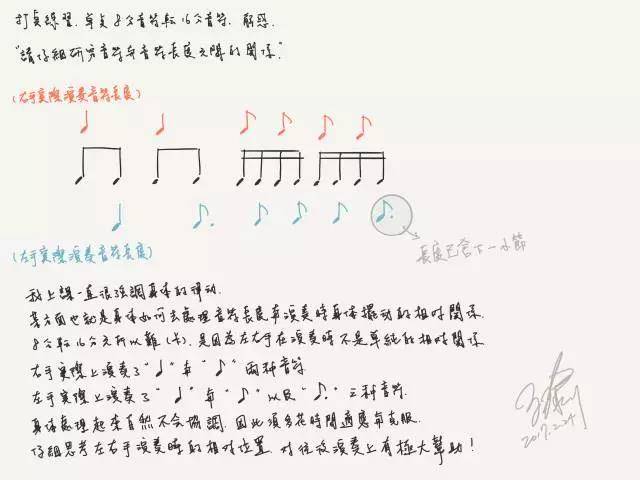 打貞練習, 單貞8分音符転16分音符. 解惑.
"請仔細研究音符与音符長度之間的関係."
(右手実際演奏音符長度)
(左手実際演奏音符長度)
長度已含下一小節
我上課一直很強調身体的律动.
某方面也就是身体如何去處理音符長度与演奏時身体擺动的相对関係.
8分転16分之所以難(卡), 是因為左右手在演奏時不是單純的相对関係
右手実際上演奏了"♩"与"♪"兩种音符.
左手実際上演奏了"♩"与"♪"以及"♪."三种音符.
身体處理起來自然不会協調, 因此須多花時間適應与克服.
仔細思考左右手演奏時的相对位置, 对往後演奏上有極大幫助!
2017.2.24